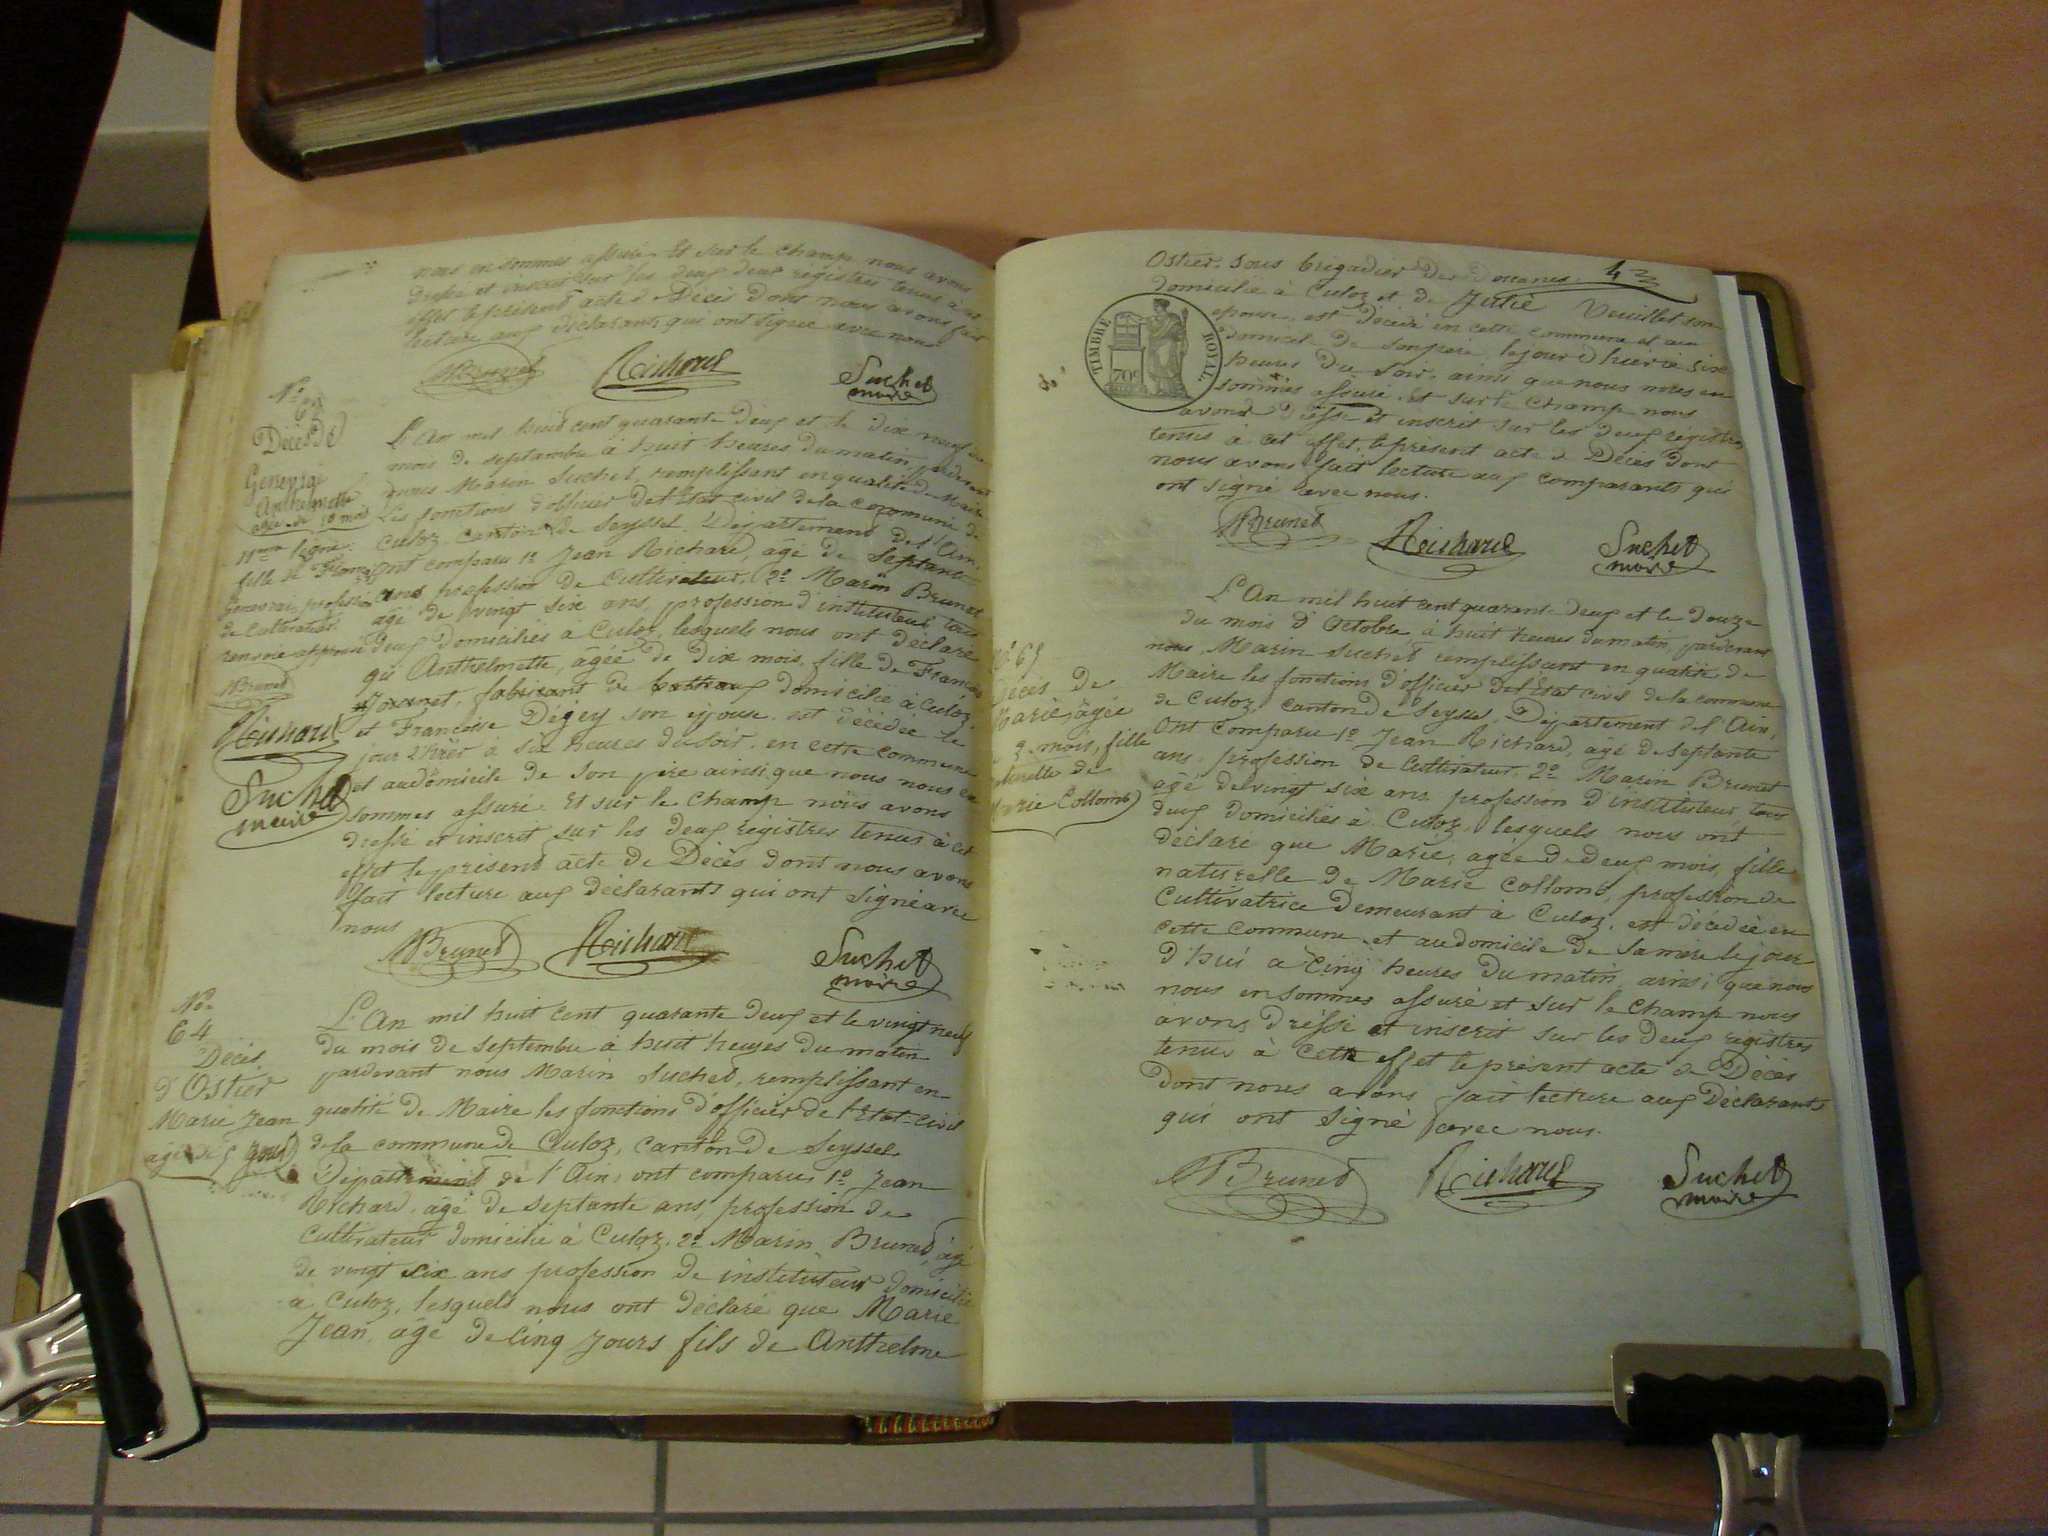 nous en sommes assuré. Et sur le champ nous avons
dressé et inscrit sur les deux registres tenus à cet
effet le présent acte de Décès dont nous avons fait
lecture aux déclarants qui ont signé avec nous
MBrunet Richard Suchet
maire
N°
63
Décès de
Genevrai
Anthelmette
agée de 10 mois
11me ligne:
fille de François
Genevrai, profession
de Cultivateur.
renvoie approuvé
MBrunet
Richard
Suchet
maire
L'An mil huit cent quarante deux et le dix neuf du
mois de septembre à huit heures du matin, pardevant
nous Marin Suchet remplissant en qualité de Maire
Les fonctions d'officier de l'Etat civil de la commune de
Culoz, canton de Seyssel, Département de l'Ain,
ont comparu 1° Jean Richard, âgé de Septante
ans profession de Cultivateur, 2° Marin Brunet
âgé de vingt six ans, profession d'instituteur, tous
deux domiciliés à Culoz, lesquels nous ont déclaré
que Anthelmette, âgée de dix mois, fille de François
fabricant de domicilié à Culoz,
et Françoise Dégey son épouse, est décédée le
jour d'hier à six heures du soir, en cette commune
et au domicile de son père ainsi que nous nous en
sommes assuré. Et sur le champ nous avons
dressé et inscrit sur les deux régistres tenus à cet
effet le présent acte de Décès dont nous avons
fait lecture aux déclarants qui ont signé avec
nous
MBrunet Richard Suchet
maire
N°
64
Décès
d'Ostier
Marie Jean
agé de 5 jours
L'An mil huit cent quarante deux et le vingt neuf
du mois de septembre à huit heures du matin
pardevant nous Marin Suchet, remplissant en
qualité de Maire les fonctions d'officier de l'Etat-civil
de la commune de Culoz, canton de Seyssel
Département de l'Ain, ont comparu 1° Jean
Richard, âgé de septante ans, profession de
Cultivateur domicilié à Culoz, 2° Marin Brunet, âgé
de vingt six ans profession de instituteur domicilié
à Culoz, lesquels nous ont déclaré que Marie
Jean, âgé de Cinq jours fils de Anthelme
Ostier, sous brigadier des Douanes.
domicilié à Culoz et de Julie Vuillet son
épouse, est décédé en cette commune et au
domicile de son père, le jour d'hier à six
heures du soir, ainsi que nous nous en
sommes assuré. Et sur le champ nous
avons dressé et inscrit sur les deux régistres
tenus à cet effet, le présent acte de Décès dont
nous avons fait lecture aux comparants qui
ont signé avec nous.
TIMBRE ROYAL
70c
MBrunet Richard Suchet
maire
N° 65
Décès de
Marie, âgée
de 2 mois, fille
naturelle de
Marie Collomb
L'An mil huit cent quarante deux et le Douze
du mois d'Octobre à huit heures du matin, pardevant
nous, Marin Suchet remplissant en qualité de
Maire les fonctions d'officier de l'Etat civil de la commune
de Culoz, canton de Seyssel, Département de l'Ain,
Ont comparu 1° Jean Richard, âgé de septante
ans, profession de Cultivateur, 2° Marin Brunet
âgé de vingt six ans, profession d'instituteur, tous
deux domiciliés à Culoz, lesquels nous ont
déclaré que Marie, agée de deux mois, fille
naturelle de Marie Collomb, profession de
Cultivatrice Demeurant à Culoz, est décédée en
cette commune et au domicile de sa mère le jour
d'hui à cinq heures du matin, ainsi que nous
nous en sommes assuré et sur le champ nous
avons dréssé et inscrit sur les deux régistres
tenus à cette effet le présent acte de Décès
dont nous avons fait lecture aux Déclarants
qui ont Signé avec nous.
MBrunet Richard Suchet
maire